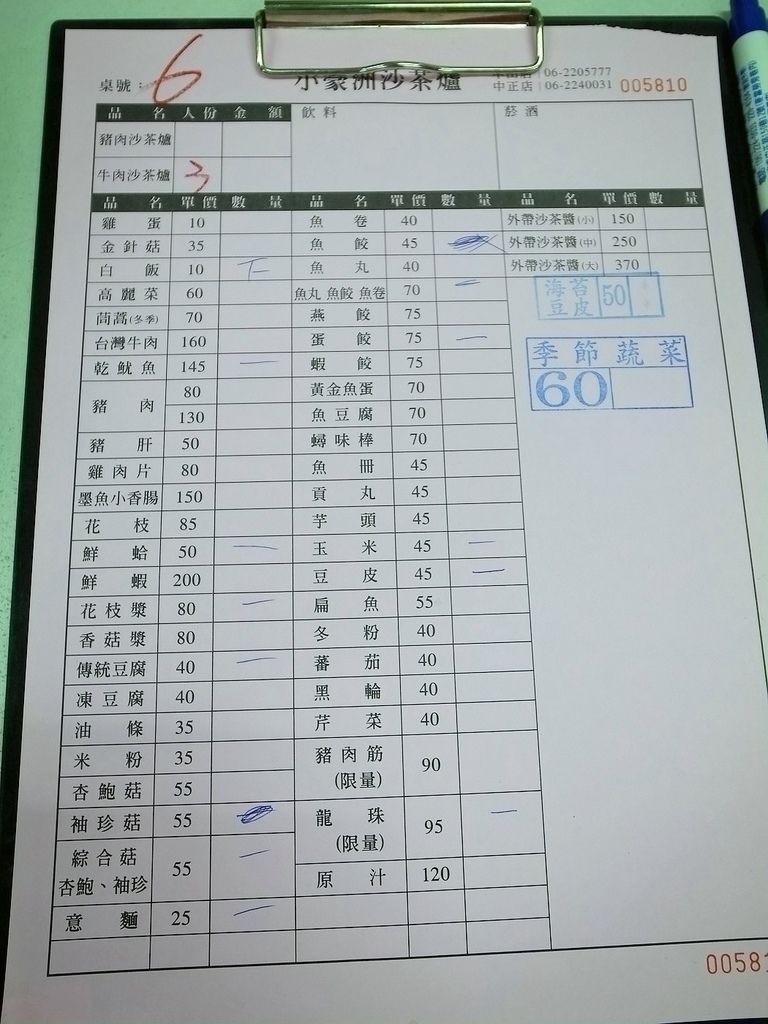 桌號：6
小蒙洲沙茶爐
06-2205777
中正店 06-2240031
005810
品名 人份 金額 飲料 菸酒
豬肉沙茶爐
牛肉沙茶爐 3
品名 單價 數量 品名 單價 數量 品名 單價 數量
雞蛋 10 魚卷 40 外帶沙茶醬(小) 150
金針菇 35 魚餃 45 外帶沙茶醬(中) 250
白飯 10 下 魚丸 40 外帶沙茶醬(大) 370
高麗菜 60 魚丸 魚餃 魚卷 70 一 海苔豆皮 50
茼蒿(冬季) 70 燕餃 75
台灣牛肉 160 蛋餃 75 一 季節蔬菜
乾魷魚 145 一 蝦餃 75 60
豬肉 80 黃金魚蛋 70
130 魚豆腐 70
豬肝 50 蟳味棒 70
雞肉片 80 魚冊 45
墨魚小香腸 150 貢丸 45
花枝 85 芋頭 45
鮮蛤 50 一 玉米 45 一
鮮蝦 200 豆皮 45 一
花枝漿 80 一 扁魚 55
香菇漿 80 冬粉 40
傳統豆腐 40 一 蕃茄 40
凍豆腐 40 黑輪 40
油條 35 芹菜 40
米粉 35 豬肉筋(限量) 90
杏鮑菇 55
袖珍菇 55 龍珠(限量) 95 一
綜合菇 杏鮑、袖珍 55 一 原汁 120
意麵 25 一
0058